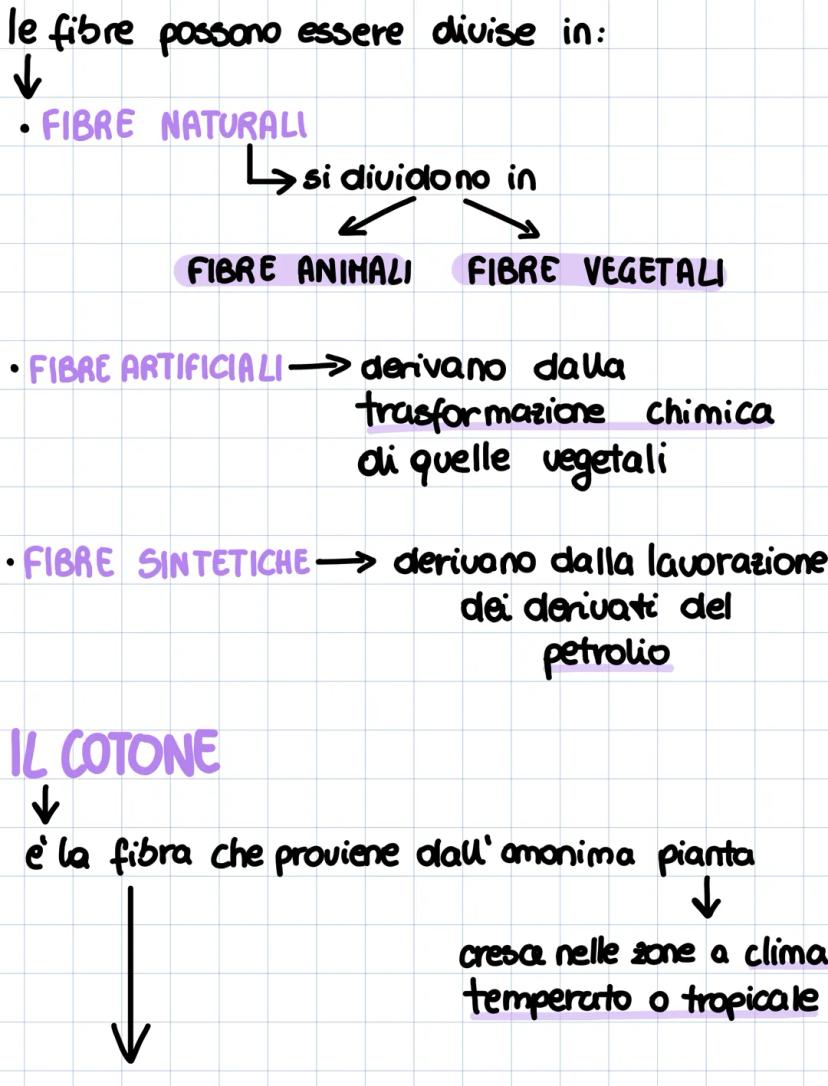 le fibre possono essere divise in:
• FIBRE NATURALI
si dividono in
FIBRE ANIMALI FIBRE VEGETALI
• FIBRE ARTIFICIALI → derivano dalla
trasformazione chimica
di quelle vegetali
• FIBRE SINTETICHE → derivano dalla lavorazione
dei derivati del
petrolio
IL COTONE
è la fibra che proviene dall'omonima pianta
cresce nelle zone a clima
temperato o tropicale